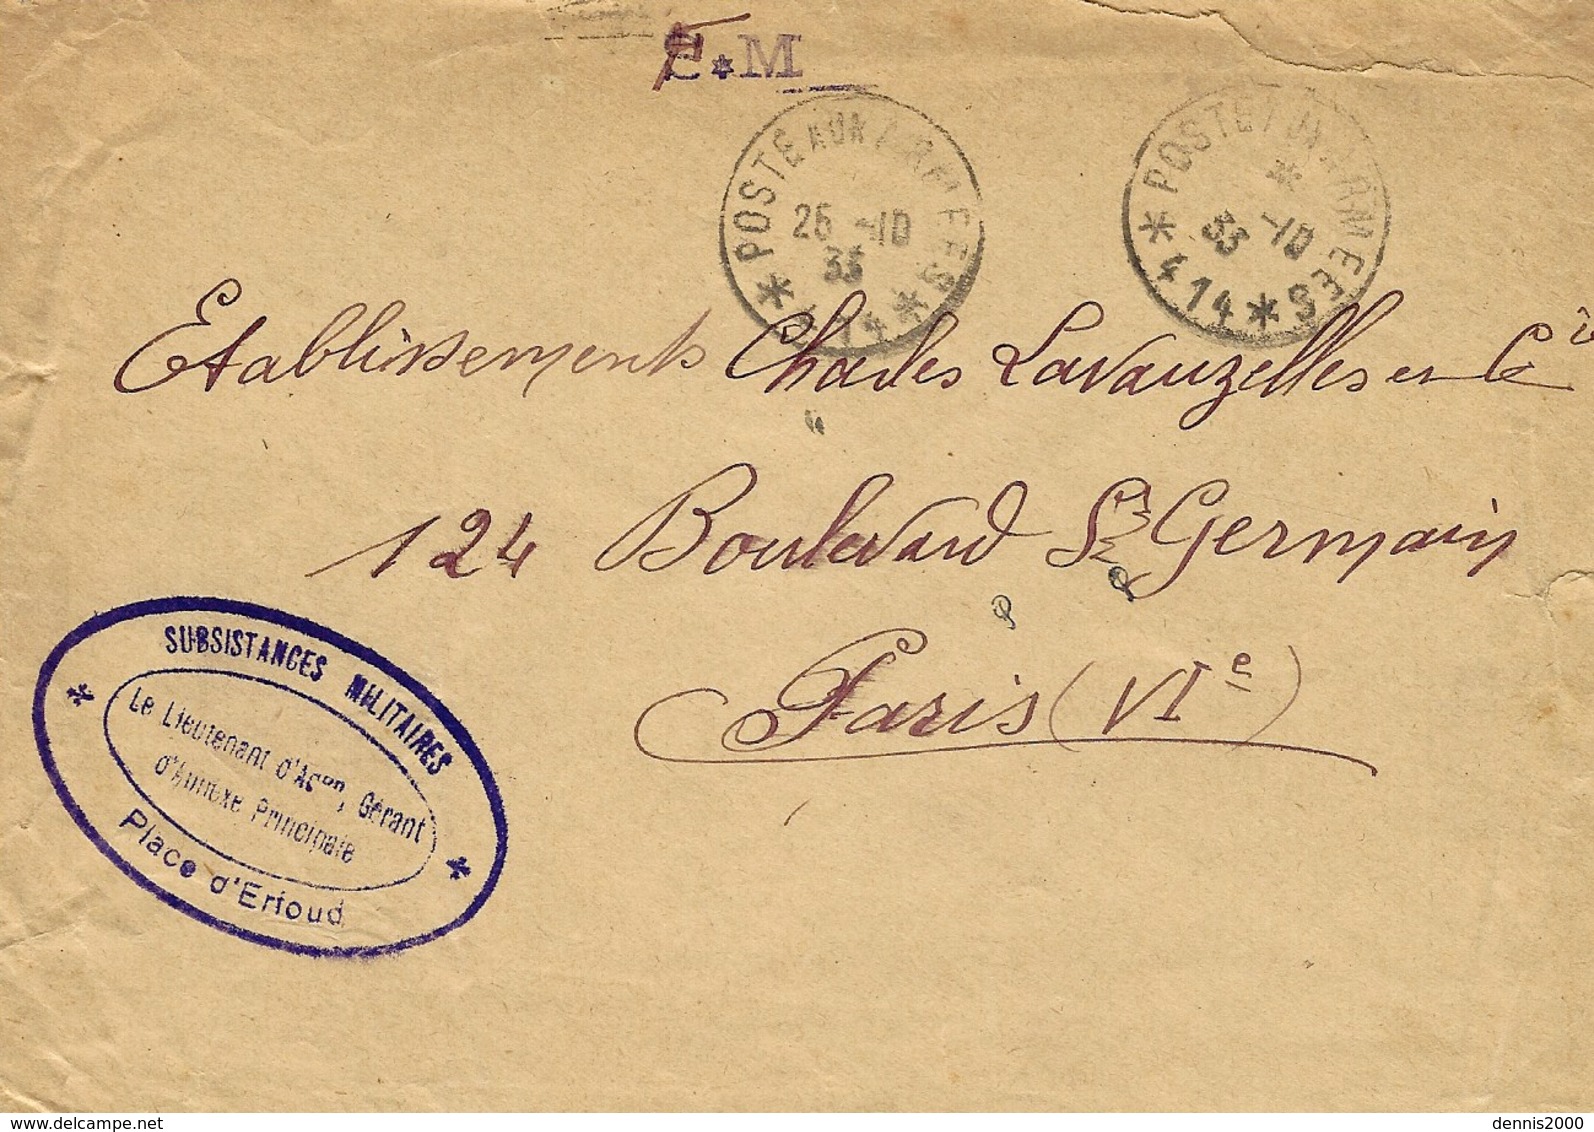 F*M
POSTE AUX ARMEES
26 -10
33
* 414 *
POSTE AUX ARMEES
*
-10
33
* 414 *
Etablissements Charles Lavauzelles et Cie
124 Boulevard St Germain
Paris (VIe)
SUBSISTANCES MILITAIRES
Le Lieutenant d'Adon, Gérant
d'Annexe Principale
Place d'Erfoud
delcampe.net
dennis2000